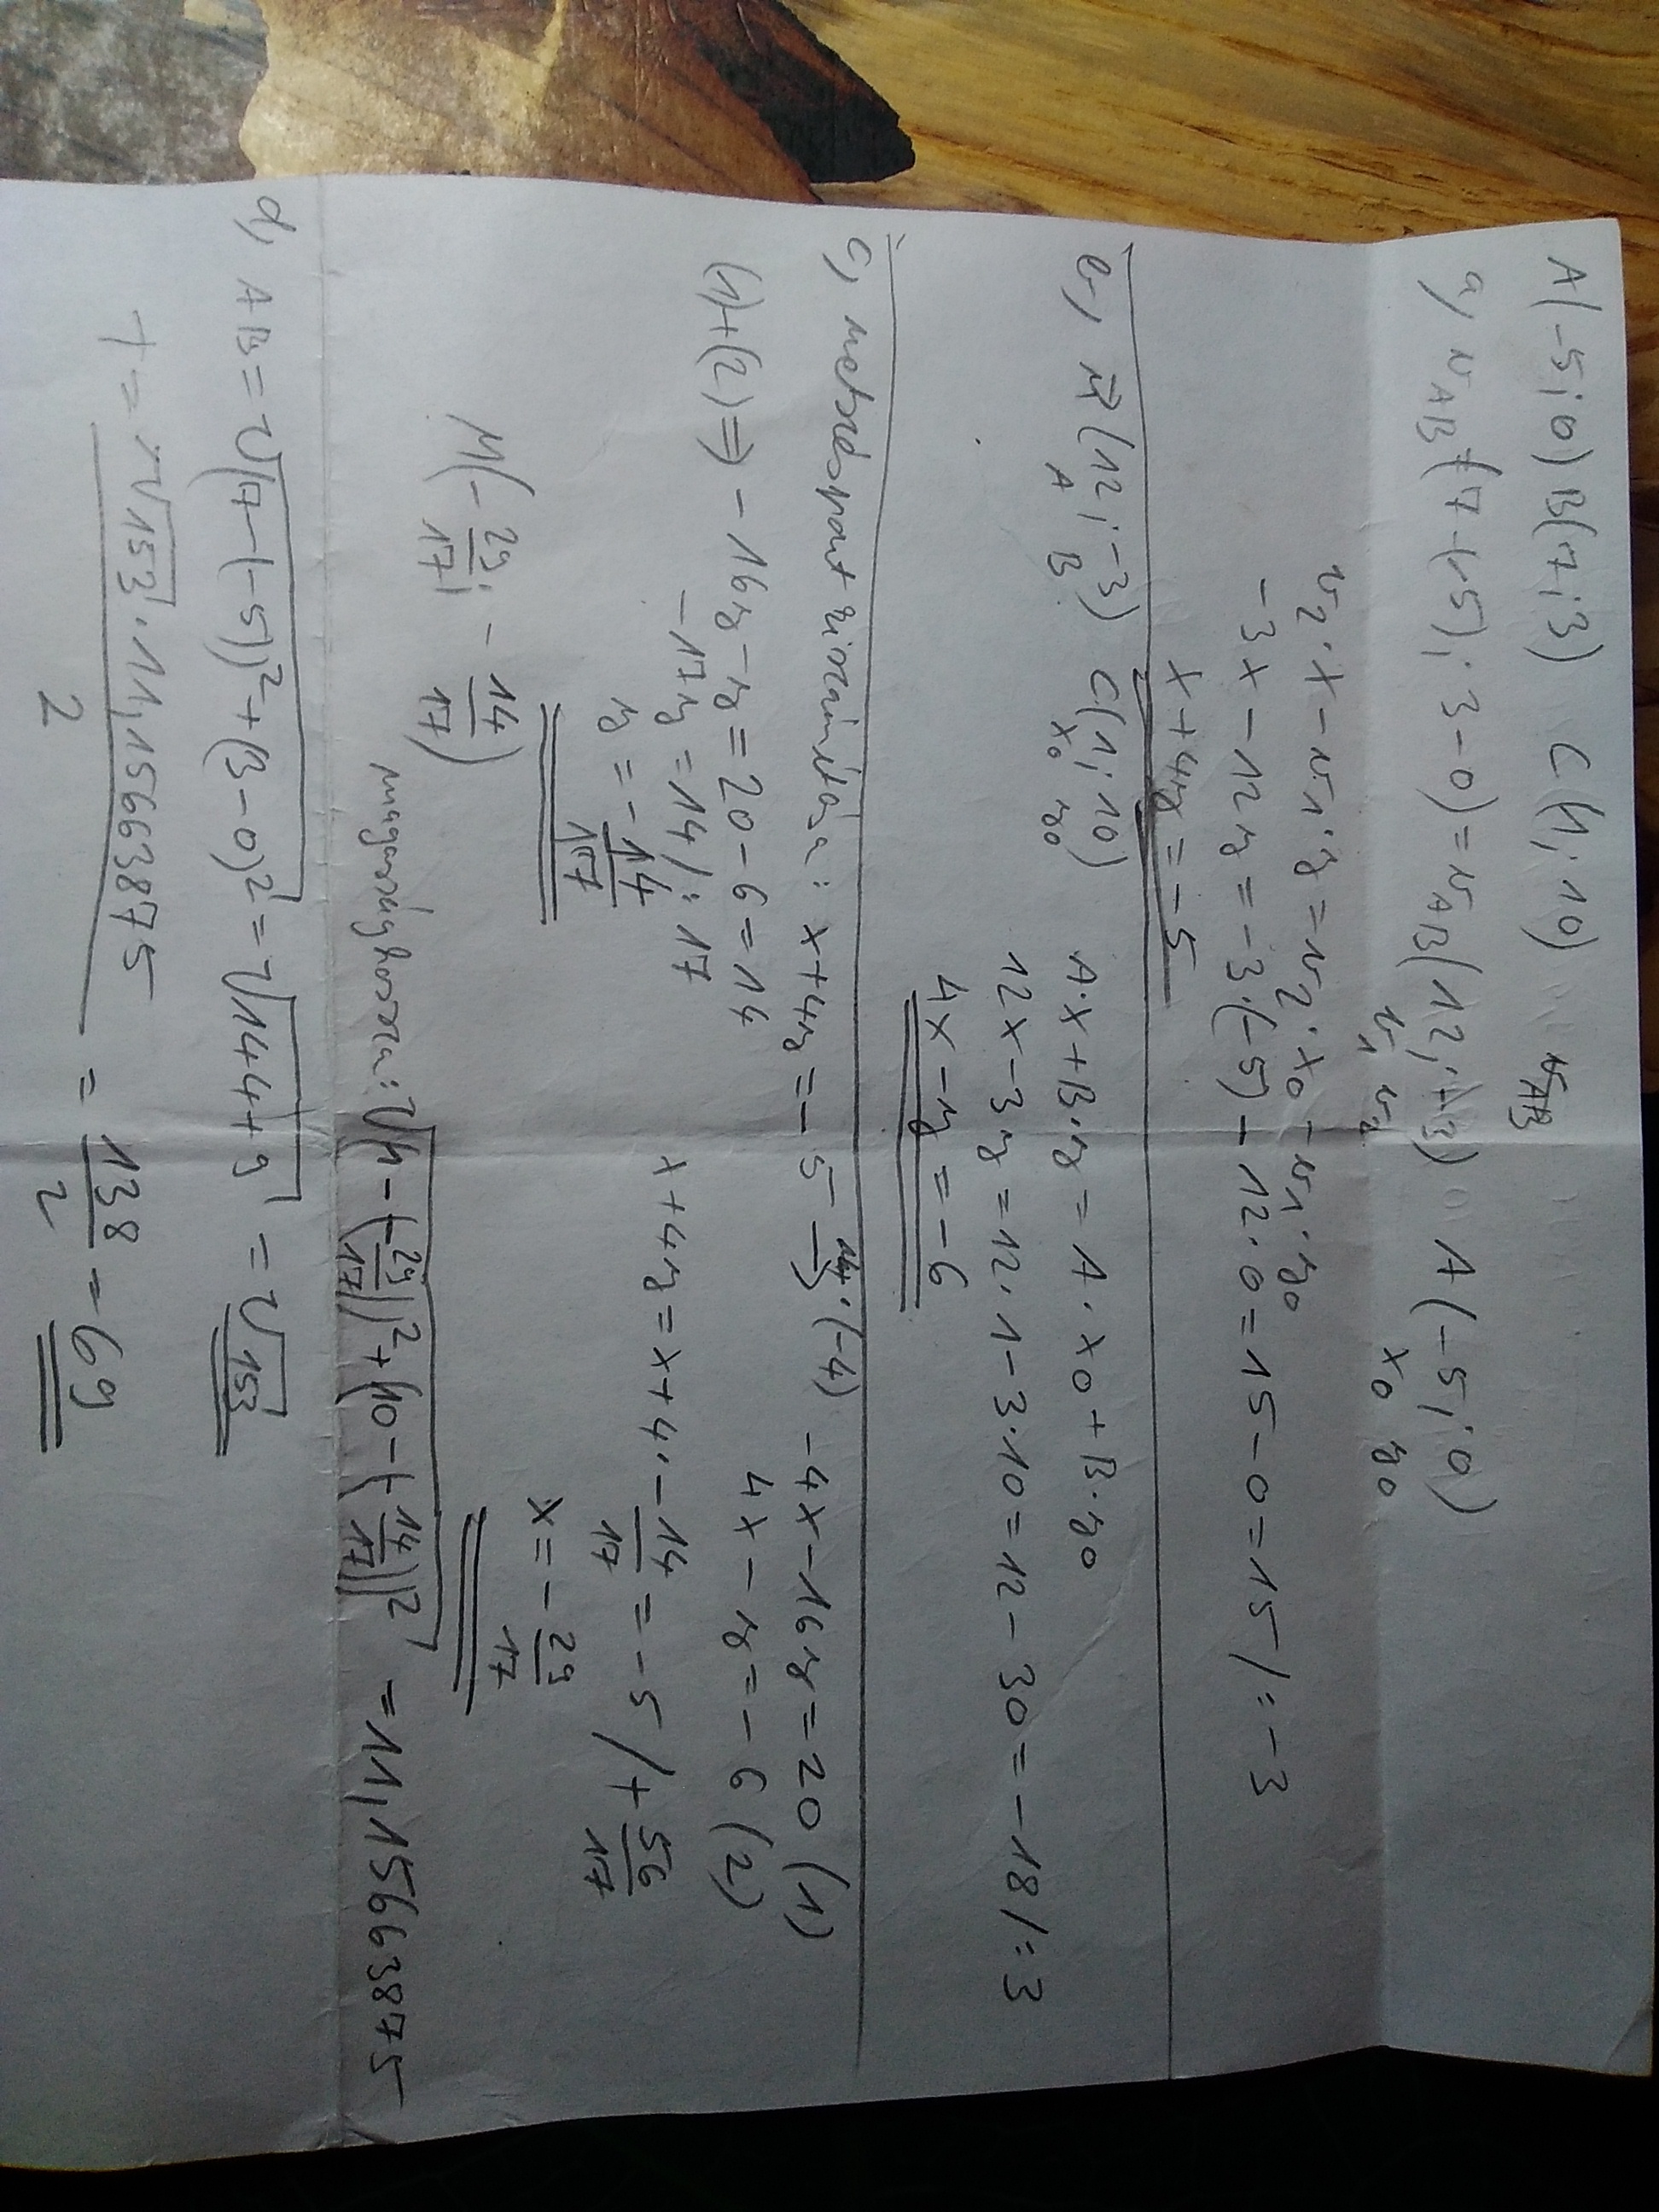 A(-5;0) B(7;3) C(1;10) v AB
a, v AB = (7-(-5); 3-0) = v AB (12; +3) A(-5;0)
v1 v2 x0 y0
v2·x - v1·y = v2·x0 - v1·y0
-3x - 12y = -3·(-5) - 12·0 = 15 - 0 = 15 /:-3
x + 4y = -5
b, n⃗ (12;-3) C(1;10) A·x + B·y = A·x0 + B·y0
A B x0 y0
12x - 3y = 12·1 - 3·10 = 12 - 30 = -18 /:3
4x - y = -6
c, metszéspont kiszámítása: x + 4y = -5 → ·(-4) -4x - 16y = 20 (1)
4x - y = -6 (2)
(1)+(2) ⇒ -16y - y = 20 - 6 = 14
-17y = 14 /:17
x + 4y = x + 4·-14/17 = -5 /+ 56/17
y = -14/17
x = -29/17
M(-29/17; -14/17)
magasság hossza: √(1-(-29/17))² + (10-(-14/17))² = 11,15663875
d, AB = √(7-(-5))² + (3-0)² = √144+9 = √153
T = √153·11,15663875 / 2 = 138/2 = 69